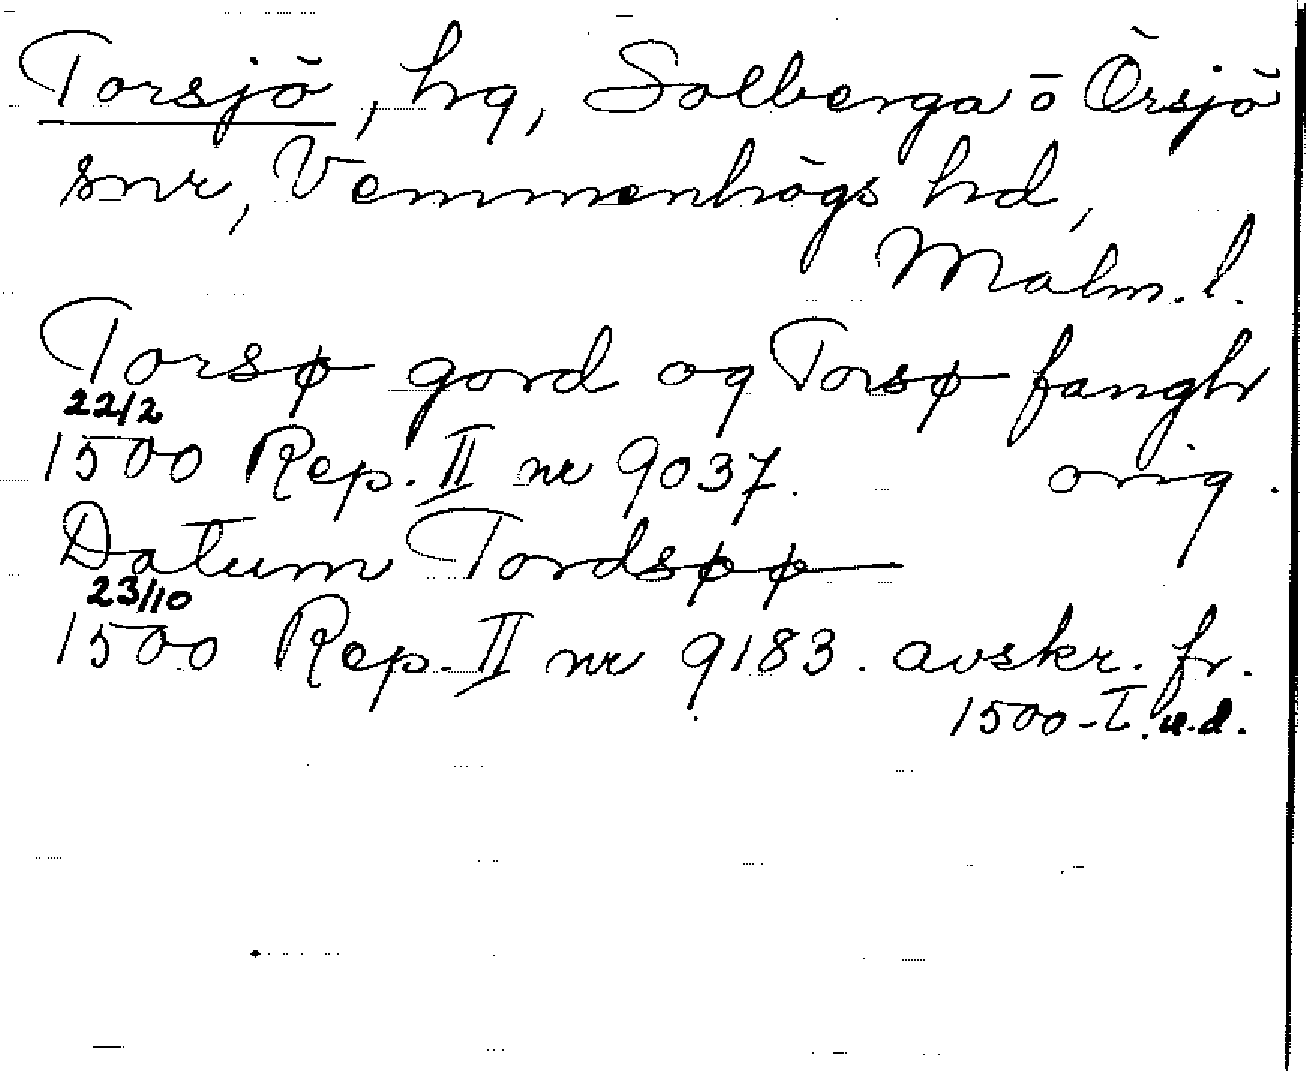 Torsjö, hg, Solberga o Örsjö
snr, Vemmenhögs hd,
Malm. l.
Torsø gord og Torsø fangh
22/2
1500 Rep. II nr 9037. orig.
Datum Tordsøø
23/10
1500 Rep. II nr 9183. avskr. fr.
1500-T. u.d.